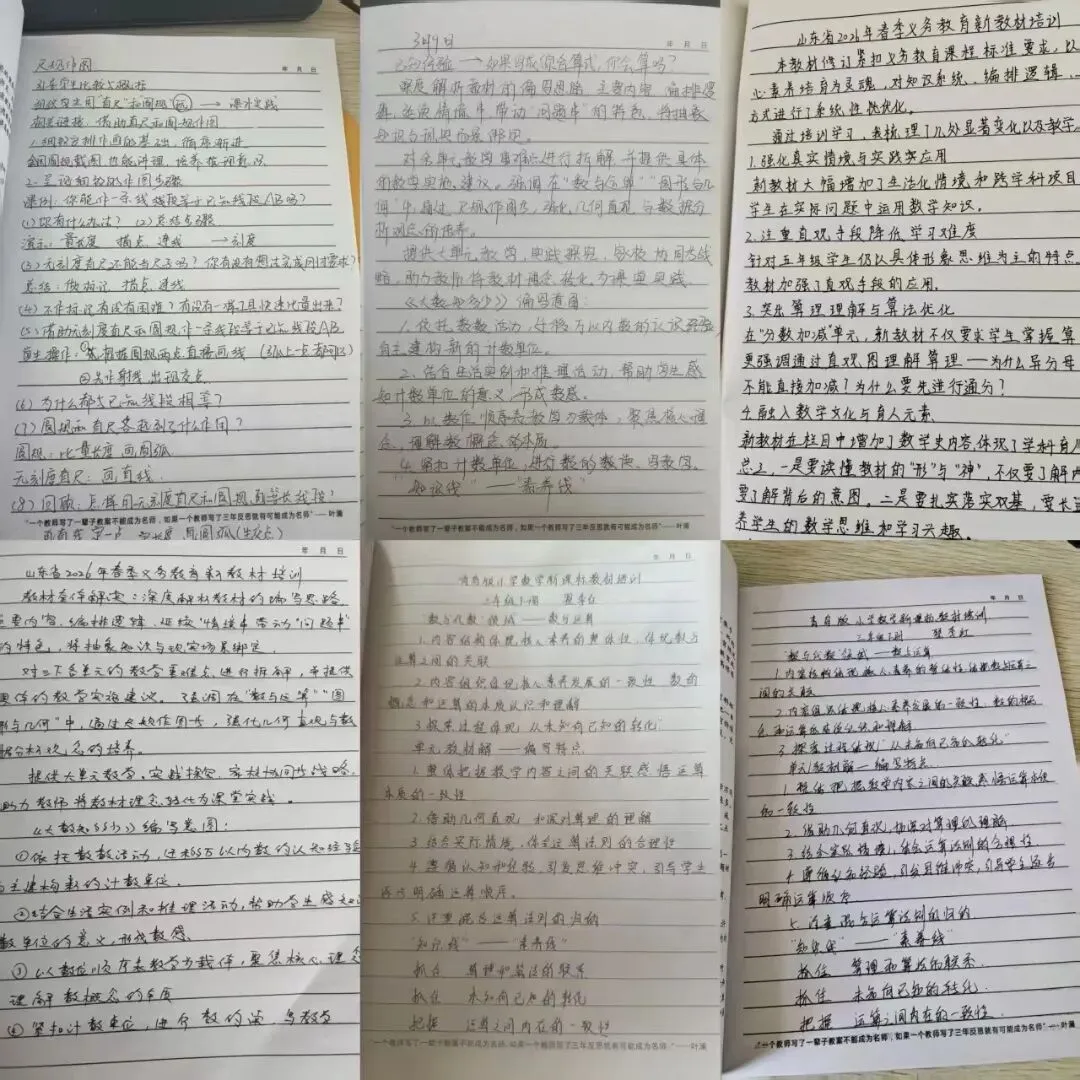 尺规作图
年 月 日
现代学生用"直尺"和圆规(画) → 课外实践
相关链接:借助直尺和圆规作图
2.呈现细致的作图步骤
课例:你能作一条线段等于已知线段AB吗?
(1)你有什么办法? (2)总结步骤
演示:量长度 描点 连线 → 刻度
总结:做标记 描点 连线
(5)借助无刻度直尺和圆规作一条线段等于已知线段AB
②先作射线,出现交点
(6)为什么都与已知线段相等?
(7)圆规和直尺各起到了什么作用?
圆规:比量长度,画圆弧
无刻度直尺:画直线
"一个教师写了一辈子教案不能成为名师,如果一个教师写了三年反思就有可能成为名师"——叶澜
3月9日
年 月 日
深度解析教材的编写思路、主要内容、编排逻辑
的教学实施建议。强调在"数与运算""图形与几
何"中,通过尺规作图等,强化几何直观与数据分
析观念的培养。
提供大单元教学,实践探究,家校协同等战
略,助力教师将教材理念转化为课堂实践。
《大数知多少》编写意图:
1.依托数数活动,迁移万以内数的认识经验
自主建构新的计数单位。
2.结合生活实例和推理活动,帮助学生感
知计数单位的意义,形成数感。
3.以数位顺序表教学为载体,聚焦核心概
念,理解数概念的本质。
4.紧扣计数单位,进行数的数读、写教学。
"知识线"——"素养线"
"一个教师写了一辈子教案不能成为名师,如果一个教师写了三年反思就有可能成为名师"——叶澜
山东省2026年春季义务教育新教材培训
本教材修订紧扣义务教育课程标准要求,以
心素养培育为灵魂,对知识系统、编排逻辑
方式进行了系统性优化。
通过培训学习,我梳理了几处显著变化以及教学
1.强化真实情境与实践类应用
新教材大幅增加了生活化情境和跨学科项目
学生在实际问题中运用数学知识。
2.注重直观手段降低学习难度
针对五年级学生仍以具体形象思维为主的特点
教材加强了直观手段的应用。
3.突出算理理解与算法优化
在"分数加减"单元,新教材不仅要求学生掌握算
更强调通过直观图理解算理——为什么异分母
不能直接加减?为什么要先进行通分?
4.融入数学文化与育人元素
新教材在栏目中增加了数学史内容体现了学科育人
总之,一是要读懂教材的"形"与"神",不仅要了解内
要了解背后的意图。二是要扎实落实双基,要长远
养学生的数学思维和学习兴趣
年 月 日
山东省2026年春季义务教育新教材培训
教材整体解读:深度解析教材的编写思路
主要内容、编排逻辑,延续"情境串带动"问题串"
的特色,将抽象知识与现实场景绑定。
对三下各单元的教学重难点进行拆解,并提供
具体的教学实施建议。强调在"数与运算""图
形与几何"中,通过尺规作图等,强化几何直观与数
据分析观念的培养。
提供大单元教学,实践探究,家校协同等战略,
助力教师将教材理念转化为课堂实践。
《大数知多少》编写意图:
①依托数数活动,迁移万以内数的认知经验
自主建构新的计数单位.
②结合生活实例和推理活动,帮助学生感知
数单位的意义,形成数感.
③以数位顺序表教学为载体,聚焦核心概念
理解数概念的本质
④紧扣计数单位,进行数的读、写教学
年 月 日
青岛版小学数学新课标教材培训
"数与代数"领域——数与运算
1.内容结构体现核心素养的整体性,体现数与
运算之间的关联
2.内容组织体现核心素养发展的一致性 数的
概念和运算的本质认识和理解
3.探索过程体现"从未知向已知的转化"
单元教材解——编写特点
1.整体把握教学内容之间的关联感悟运算
本质的一致性
2.借助几何直观 加深对算理的理解
3.结合实际情境,体会运算法则的合理性
4.遵循认知和经验,引发思维冲突,引导学生
逐步明确运算顺序.
5.注重混合运算法则的归纳
"知识线"——"素养线"
抓住 算理和算法的联系
抓住 未知向已知的转化
把握 运算之间内在的一致性
"一个教师写了一辈子教案不能成为名师,如果一个教师写了三年反思就有可能成为名师"——叶澜
年 月 日
青岛版小学数学新课标教材培训
"数与代数"领域——数与运算
1.内容结构体现核心素养的整体性,体现数与运算之
间的关联
2.内容组织体现核心素养发展的一致性,数的概
念和运算的本质认识和理解
3.探索过程体现"从未知向已知的转化"
单元教材解——编写特点
1.整体把握教学内容之间的关联,感悟运算本质
的一致性
2.借助几何直观,加深对算理的理解
3.结合实际情境,体会运算法则的合理性.
4.遵循认知和经验,引发思维冲突,引导学生逐步
明确运算顺序
5.注重混合运算法则的归纳
"知识线"——"素养线"
抓住 算理和算法的联系.
抓住 未知向已知的转化.
把握 运算之间内在的一致性.
"一个教师写了一辈子教案不能成为名师,如果一个教师写了三年反思就有可能成为名师"——叶澜